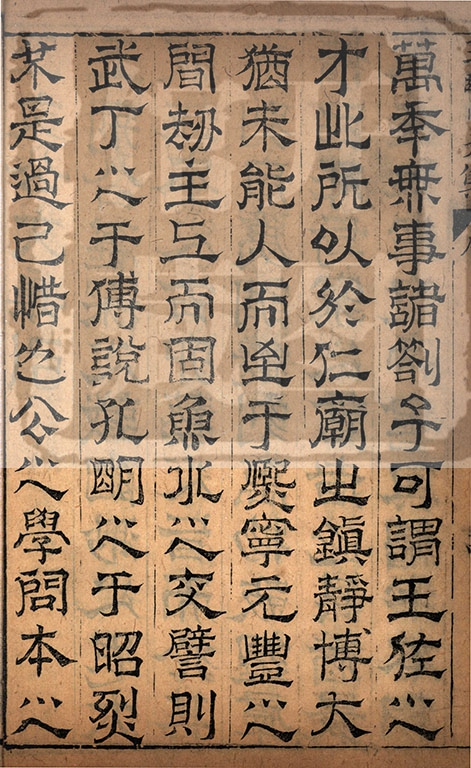 萬年無事諸劄子可謂王佐之
才此所以於仁廟之鎮靜博大
猶未能人而至于熙寧元豐之
間劫主上而固魚水之交譬則
武丁之于傅說孔明之于昭烈
不是過己惜也公之學問本之